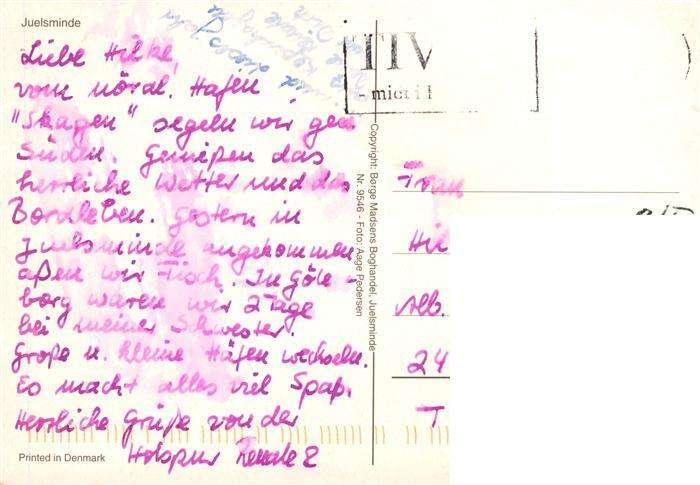 Juelsminde
Liebe Hilke,
vom nördl. Hafen
"Skagen" segeln wir gen
Süden. Genießen das
herrliche Wetter und das
Bordleben. Gestern in
Juelsminde angekommen
aßen wir Fisch. In Göte-
borg waren wir 2 Tage
bei meiner Schwester.
Große u. kleine Häfen wechseln.
Es macht alles viel Spaß.
Herrliche Grüße von der
Renate
Printed in Denmark
Copyright: Børge Madsens Boghandel, Juelsminde
Nr. 9546 - Foto: Aage Pedersen
TIV
- midt i
Frau
Hil
Alb.
24
T